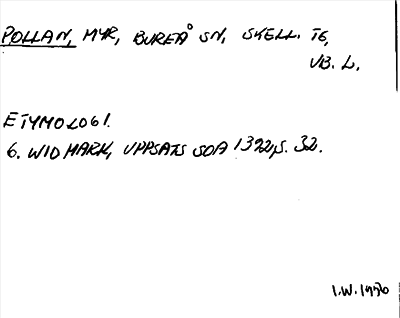 POLLAN, MYR, BUREÅ SN, SKELL. TG,
VB. L.
ETYMOLOGI.
G. WIDMARK, UPPSATS SOA 1392, S. 32.
I.W. 1956